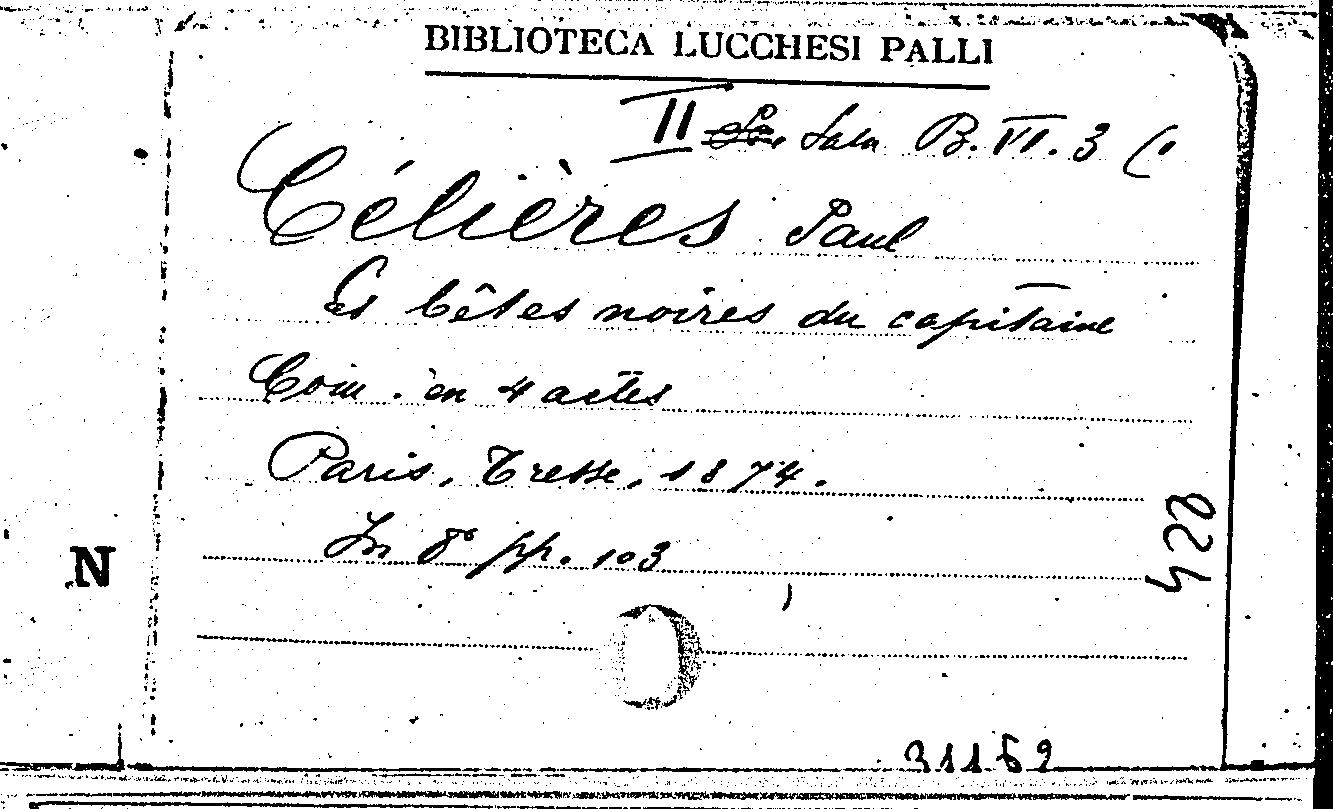 BIBLIOTECA LUCCHESI PALLI
II Sala B. VI. 3 (
Célières Paul
Les bêtes noires du capitaine
Com. en 4 actes
Paris, Tresse, 1874.
In 8° pp. 103
428
N
31152